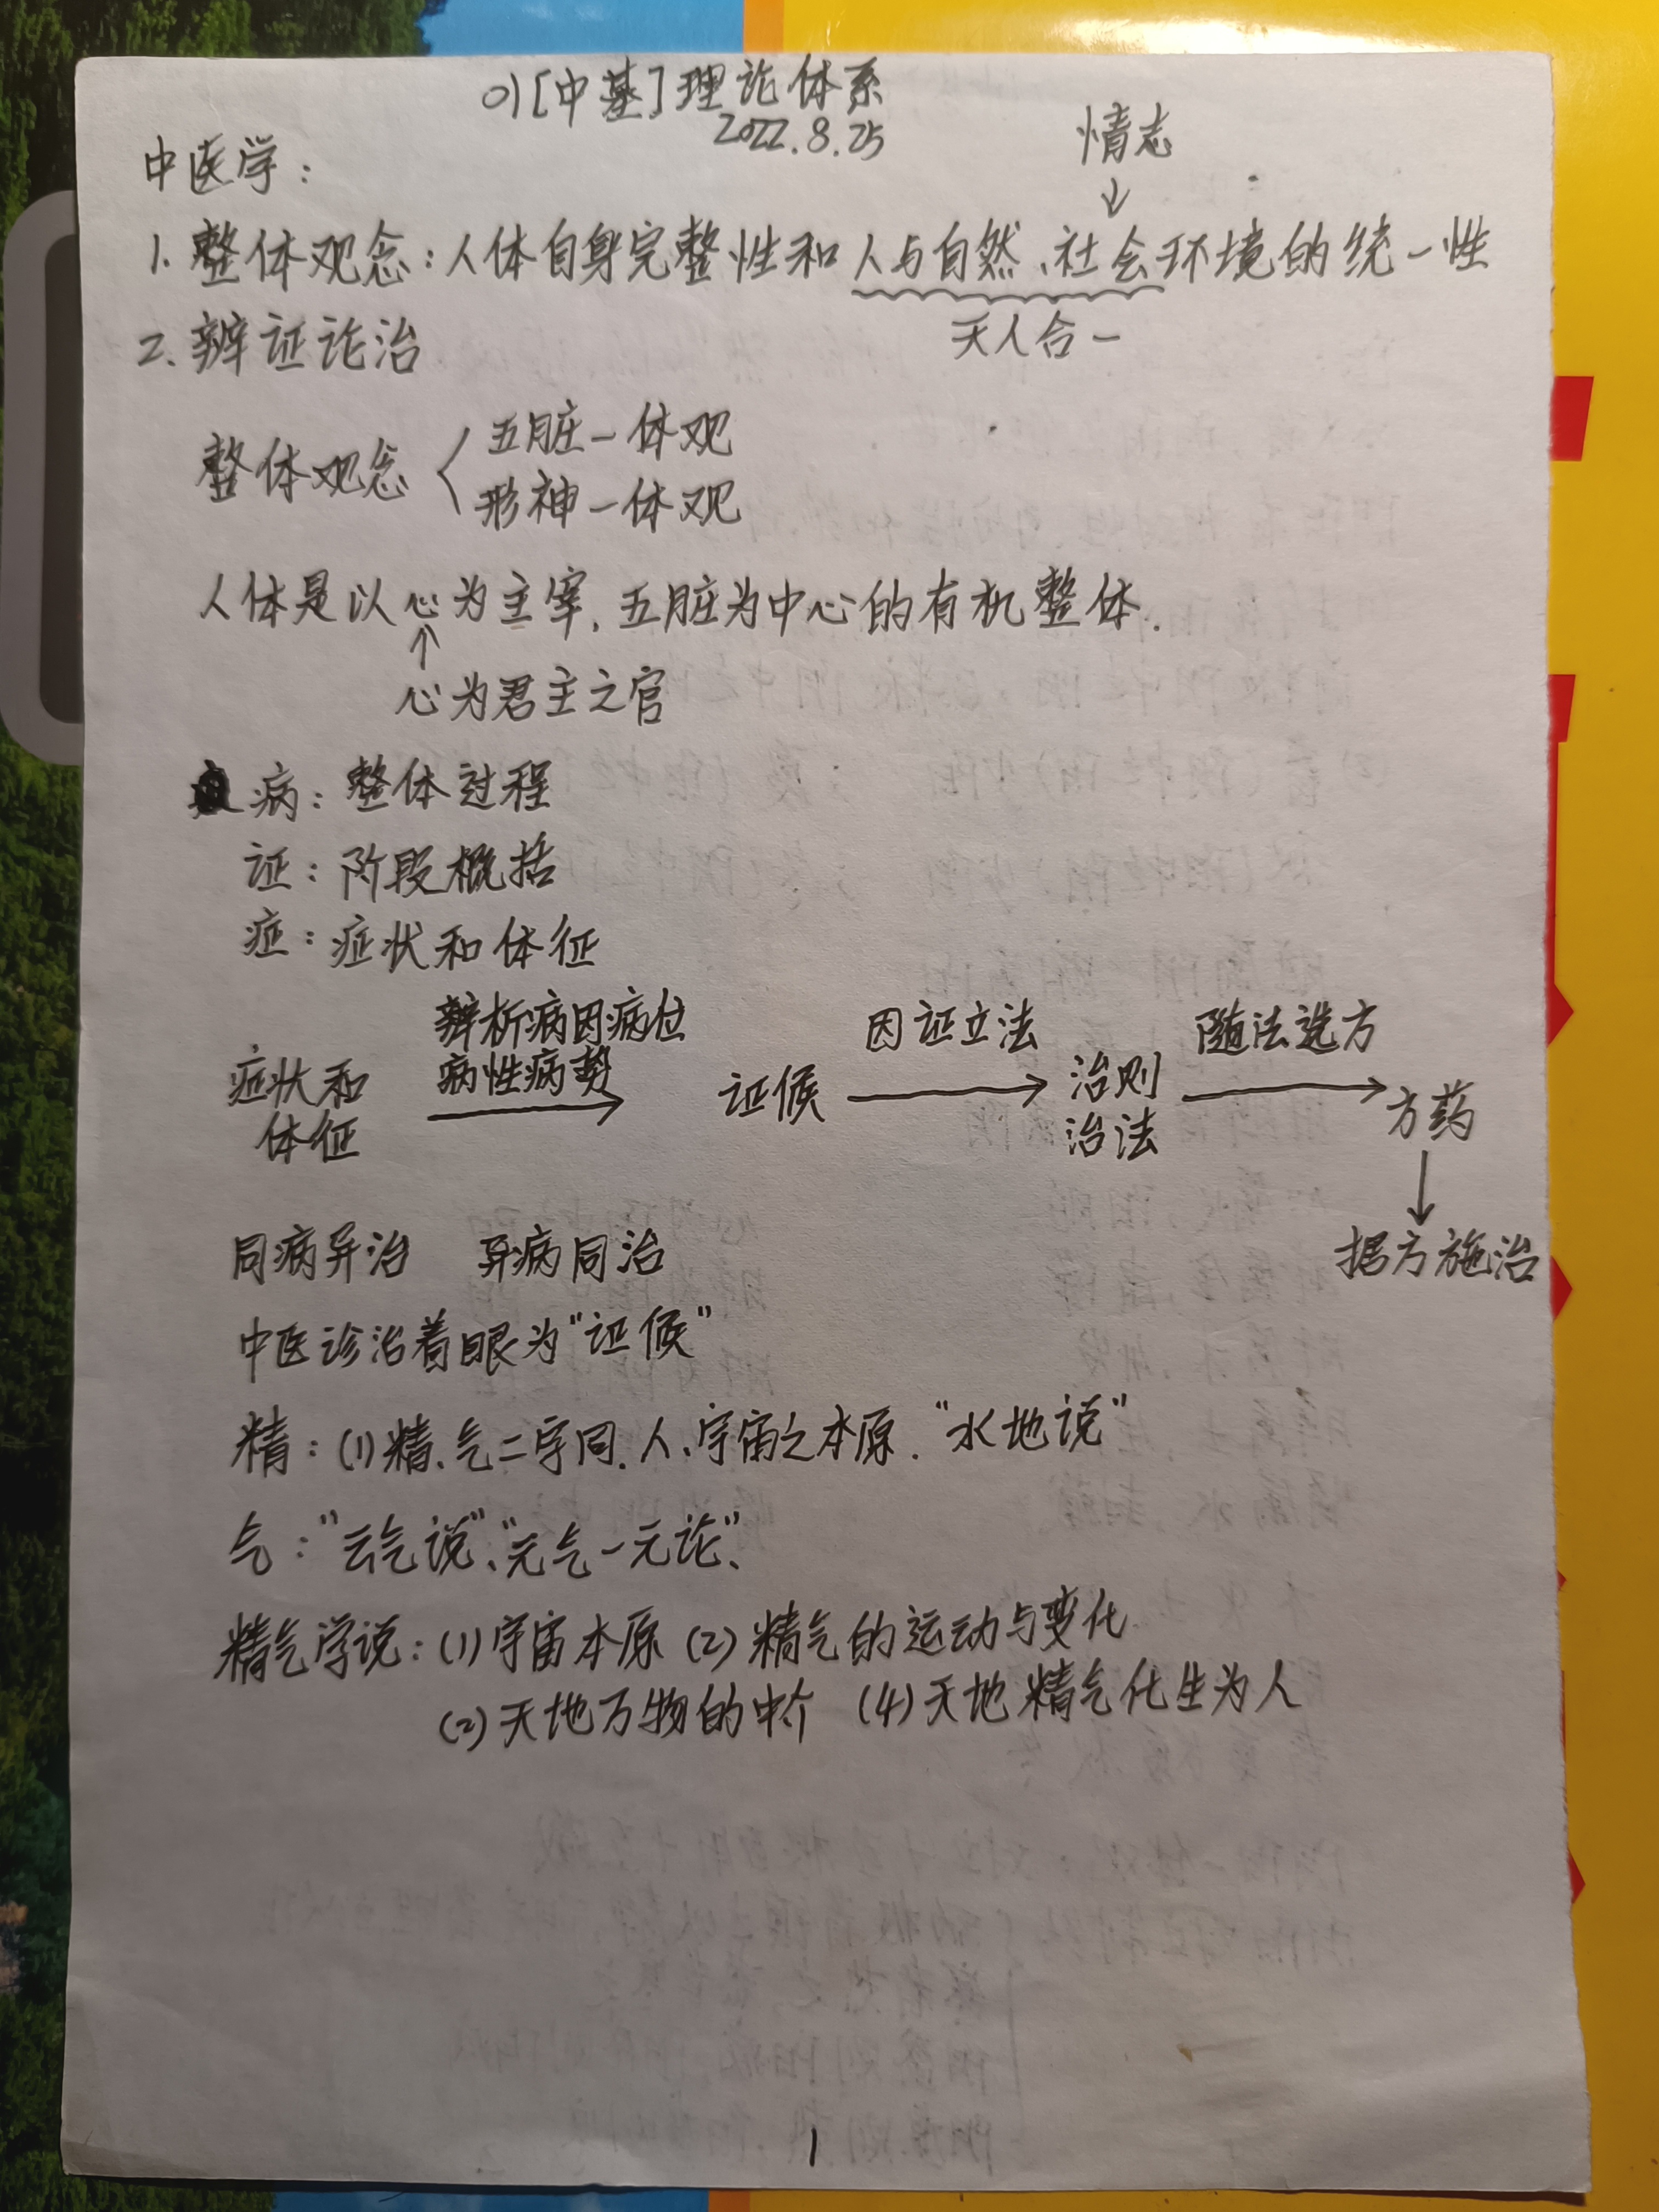 01[中基]理论体系
2022.8.25
情志
↓
中医学：
1. 整体观念：人体自身完整性和人与自然、社会环境的统一性
天人合一
2. 辨证论治
整体观念
五脏一体观
形神一体观
人体是以心为主宰，五脏为中心的有机整体．
↑
心为君主之官
病：整体过程
证：阶段概括
症：症状和体征
症状和
体征
辨析病因病位
病性病势
→
证候
因证立法
→
治则
治法
随法选方
→
方药
↓
据方施治
同病异治 异病同治
中医诊治着眼为“证候”
精：(1)精、气二字同．人、宇宙之本原．“水地说”
气：“云气说”、“元气一元论”、
精气学说：(1)宇宙本原 (2)精气的运动与变化
(2)天地万物的中介 (4)天地精气化生为人
1